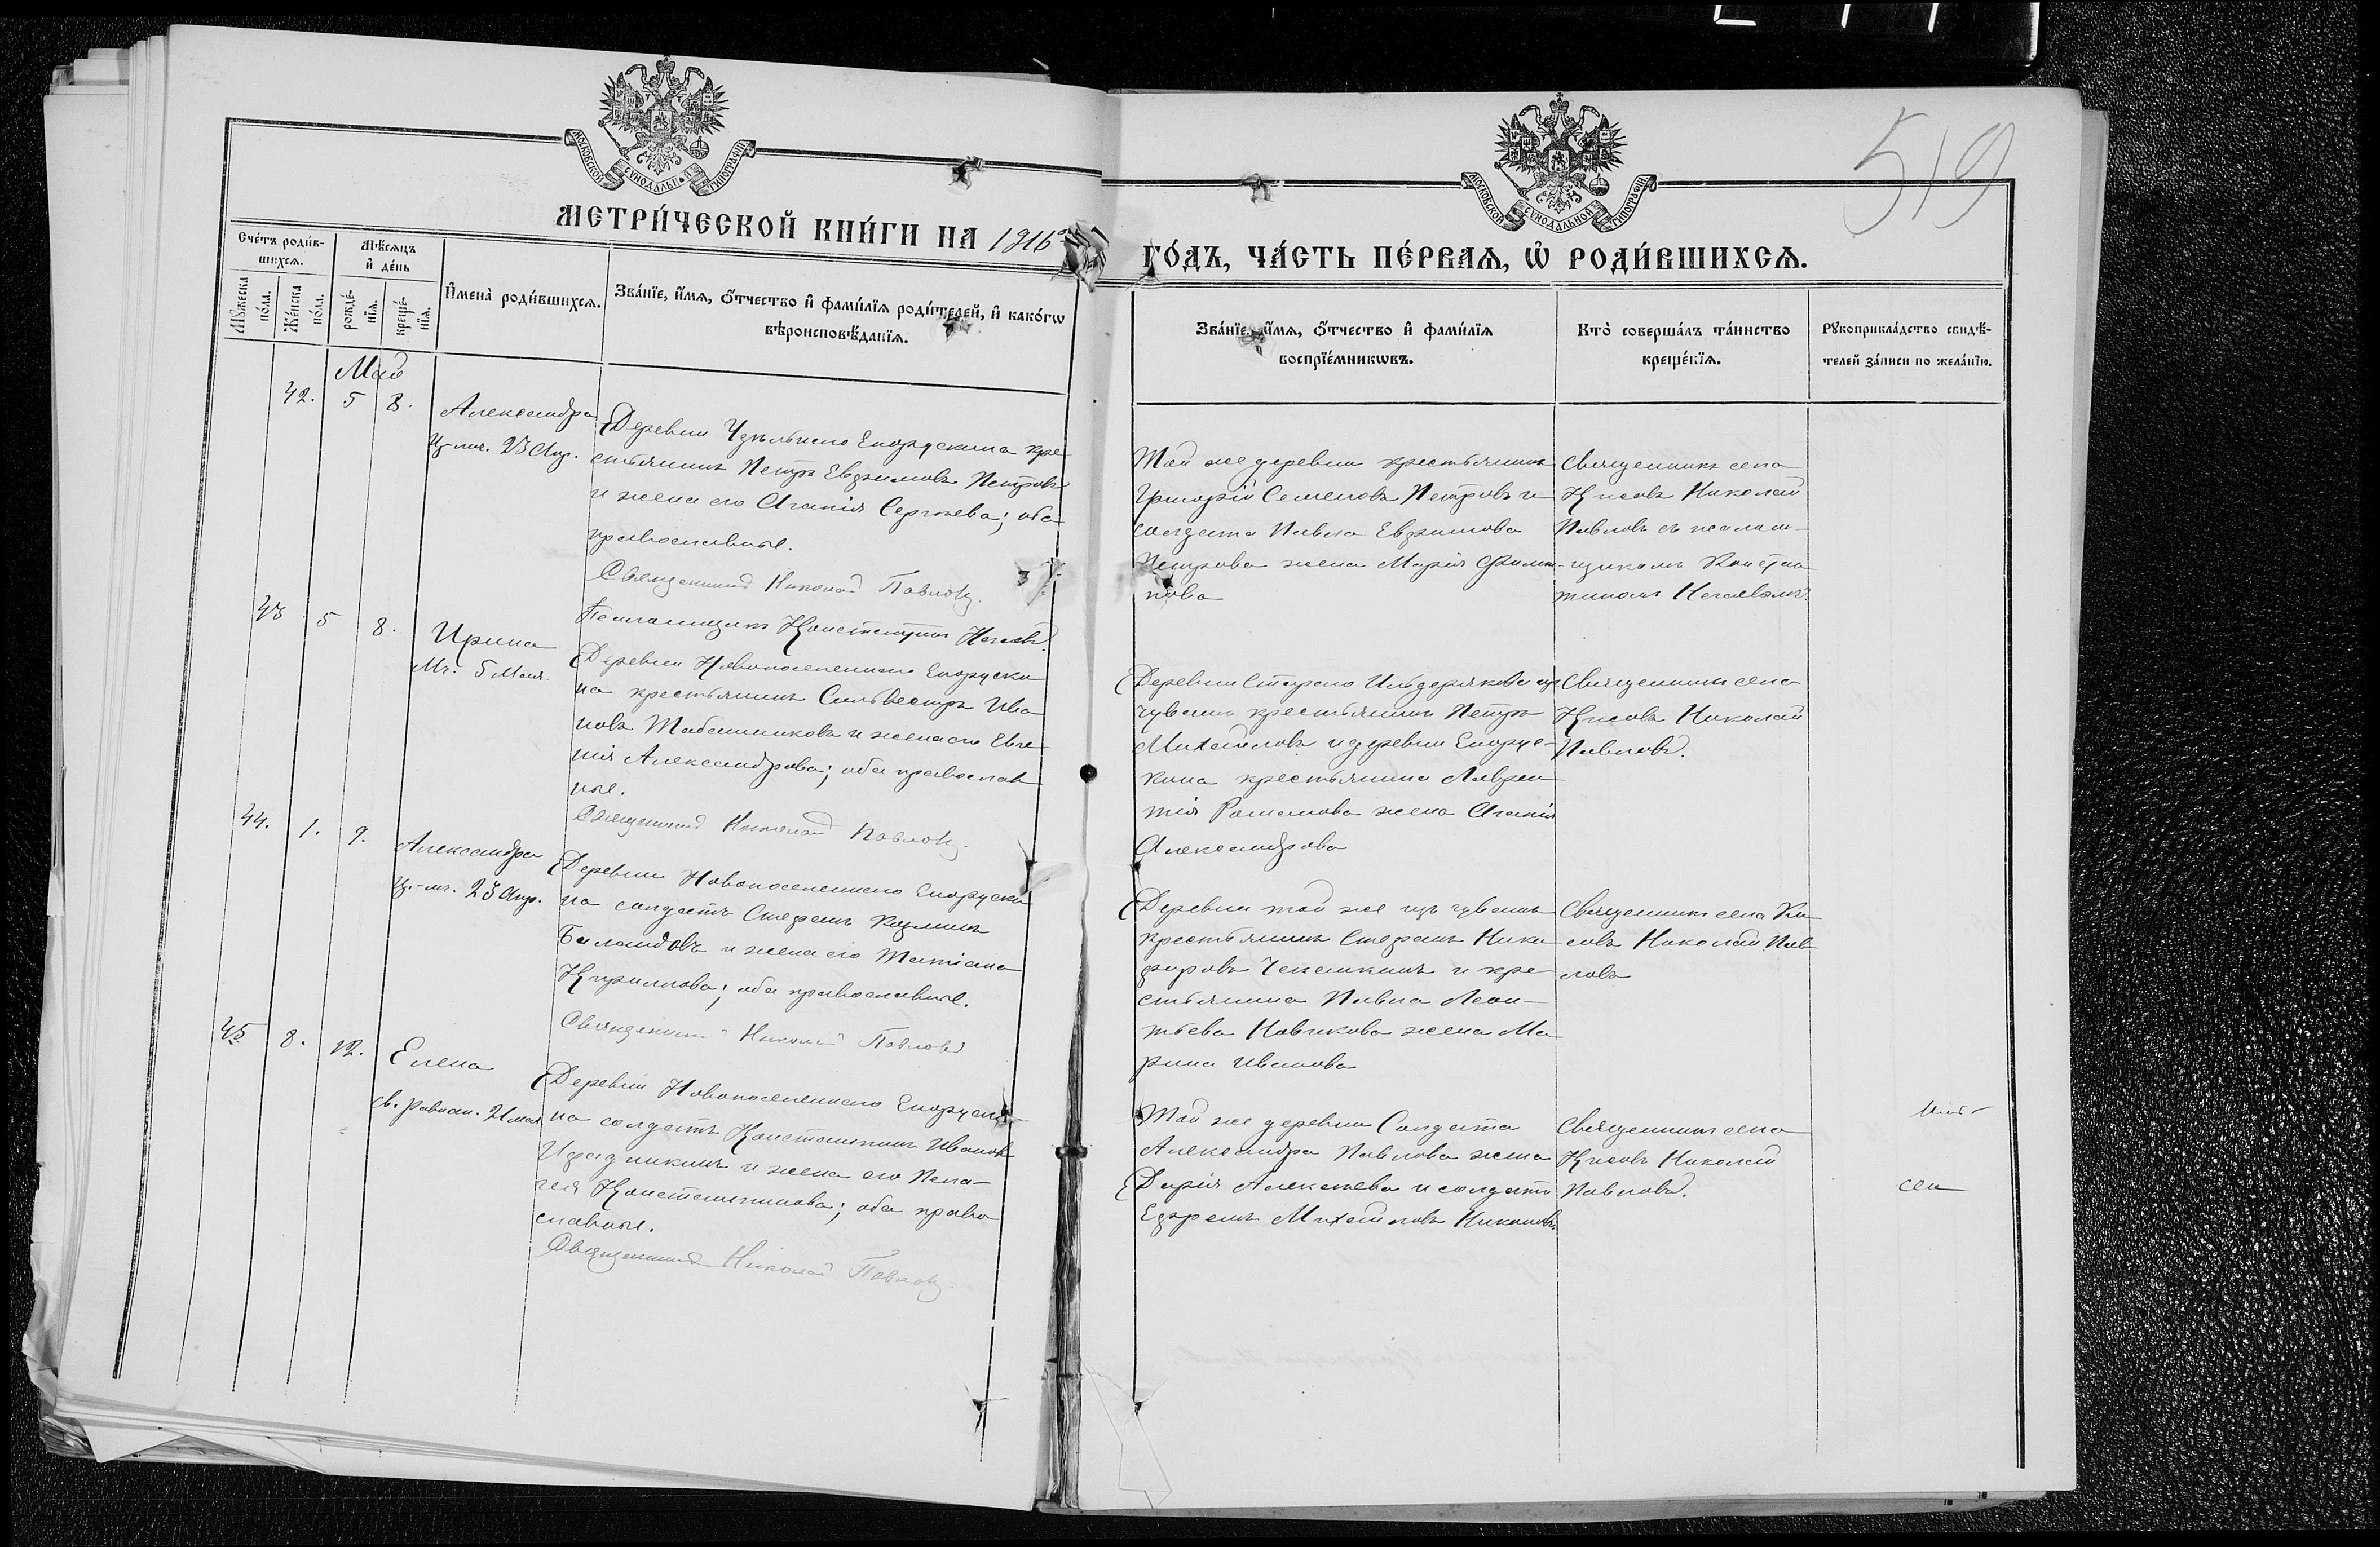 519
МОСКОВСКОЙ СУНОДАЛЬНОЙ ТИПОГРАФІИ
МОСКОВСКОЙ СУНОДАЛЬНОЙ ТИПОГРАФІИ
МЕТРИ́ЧЕСКОЙ КНИ́ГИ НА 1916
ГО́ДЪ, ЧА́СТЬ ПЕ́РВАѦ, Ѡ҆ РОДИ́ВШИХСѦ.
Сче́тъ роди́в-
шихсѧ.
Мѣ́сѧцъ
и҆ де́нь
Мꙋ́жеска
по́ла.
Же́нска
по́ла.
рожде́-
нїѧ.
креще́-
нїѧ.
И҆мена̀ роди́вшихсѧ.
Зва́нїе, и҆́мѧ, ѻ҆́тчество и҆ фами́лїѧ роди́телей, и҆ како́гѡ
вѣроисповѣ́данїѧ.
Зва́нїе, и҆́мѧ, ѻ҆́тчество и҆ фами́лїѧ
воспрїе́мникѡвъ.
Кто̀ соверша́лъ та́инство
креще́нїѧ.
Рꙋкоприкла́дство свидѣ́-
телей за́писи по жела́нїю.
Май
42. 5 8.
Александра
Ц-мч. 23 Апр.
Деревни Егорускина кре
стьянинъ Петръ Евфимовъ Петровъ
и жена его Агапія Сергѣева; оба
православные.
Священникъ Николай Павловъ.
Псаломщикъ Константинъ
Той же деревни крестьянинъ
Григорій Семеновъ Петровъ и
солдата Павла Евфимова
Петрова жена Марія Филип-
пова
Священникъ села
Николай
Павловъ съ псалом-
щикомъ Констан
тиномъ
43 5 8.
Ирина
Мч. 5 Мая.
Деревни Новопоселеннаго Егоруски
на крестьянинъ Сильвестръ Ива
новъ Табанниковъ и жена его Евге-
нія Александрова; оба православ
ные.
Священникъ Николай Павловъ.
Деревни Стараго из
чувашъ крестьянинъ Петръ
Михайловъ и деревни Егорус-
кина крестьянина Лаврен
тія Романова жена Агапія
Александрова
Священникъ села
Николай
Павловъ.
44. 1. 9.
Александра
Ц-мч. 23 Апр.
Деревни Новопоселеннаго Егоруски
на солдатъ Стефанъ Кузминъ
Баландовъ и жена его Татіана
Кириллова; оба православные.
Священникъ Николай Павловъ
Деревни той же изъ чувашъ
крестьянинъ Стефанъ Ники
форовъ Чекашкинъ и кре
стьянина Павла Леон-
тьева Новикова жена Ма
рина Иванова
Священникъ села
Николай Пав
ловъ
45 8. 12.
Елена
св. равноап. 21 мая
Деревни Новопоселеннаго Егоруски
на солдатъ Константинъ Ивановъ
и жена его Пела-
гея Константинова; оба право
славные.
Священникъ Николай Павловъ.
Той же деревни Солдата
Александра Павлова жена
Дарія Алексѣева и солдатъ
Ефремъ Михайловъ Никоновъ
Священникъ села
Николай
Павловъ.